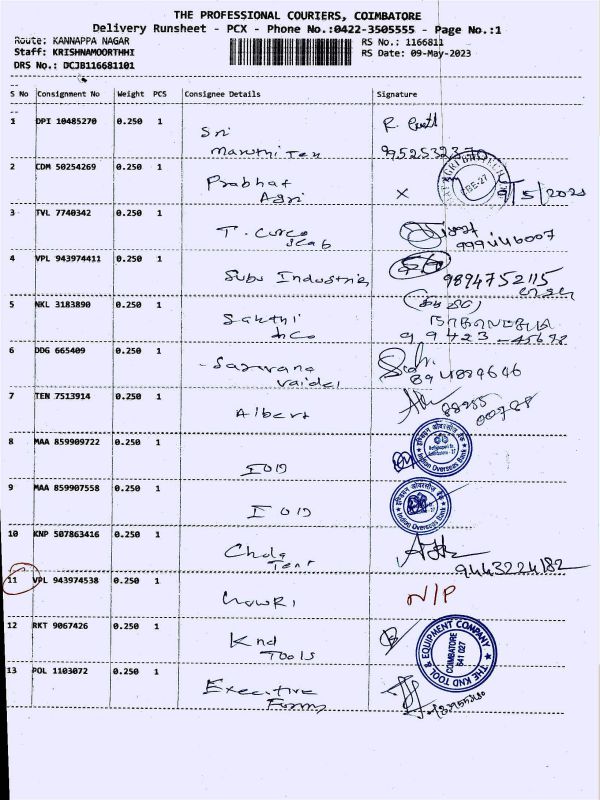 THE PROFESSIONAL COURIERS, COIMBATORE
Delivery Runsheet - PCX - Phone No.:0422-3505555 - Page No.:1
Route: KANNAPPA NAGAR RS No.: 1166811
Staff: KRISHNAMOORTHHI RS Date: 09-May-2023
DRS No.: DCJB116681101
S No Consignment No Weight PCS Consignee Details Signature
1 DPI 10485270 0.250 1 Sri
Maruthi Tex
2 CDM 50254269 0.250 1 Prabhat X 9/5/2023
Agri
3 TVL 7740342 0.250 1 T. 
9994446007
4 VPL 943974411 0.250 1 Subu Industries 9894752115
5 NKL 3183890 0.250 1 Sakthi
6 DDG 665409 0.250 1 Saravana
Vaidel 894889646
7 TEN 7513914 0.250 1 Albert
8 MAA 859909722 0.250 1 IOB
Indian Overseas Bank
9 MAA 859907558 0.250 1 IOB
Indian Overseas Bank
10 KNP 507863416 0.250 1 
9443224182
11 VPL 943974538 0.250 1 Gowri N/P
12 RKT 9067426 0.250 1 Knd
Tools
THE KND TOOL & EQUIPMENT COMPANY
COIMBATORE
641 027
13 POL 1103072 0.250 1 Executive